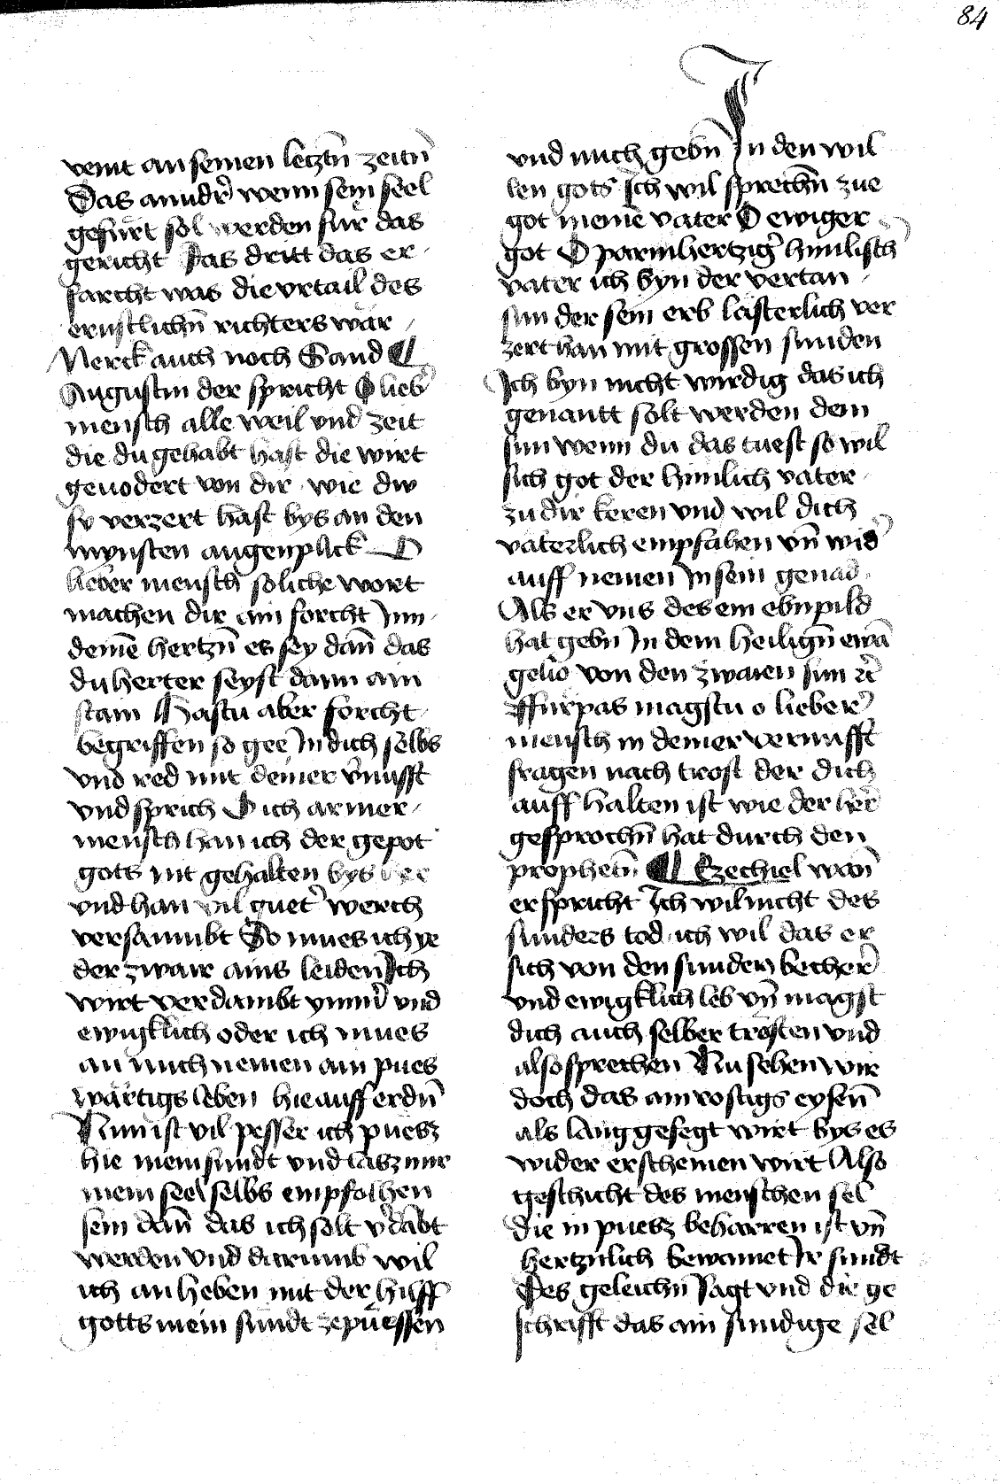 84
veint an seinen letztn̄ zeitn̄
Das annder̄ wenn sein seel
gefürt sol werden für das
gericht Das dritt das er
farcht was die vrtail des
ernstlichn̄ richters wär
Merck auch noch Sand ¶
Augustin der spricht O lieb̄
mensch alle weil vnd zeit
die du gehabt hast die wirt
geuodert von dir wie dw
sy verzert hast bys an den
mynsten augenplick O
lieber mensch soliche wort
machen dir ain forcht Inn
deine hertzn̄ es sey dan̄ das
du herter seyst dann ain
stain Hastu aber forcht
begriffen so gee In dich selbs
vnd red mit deiner v̄nufft
vnd sprich O ich armer
mensch han ich der gepot
gots nit gehalten bys
vnd han vil guet̄ werch
versambt So mues ich ye
der zwair ains leiden Ich
wirt verdambt ymmer̄ vnd
ewigklich oder ich mues
an mich nemen ain pues
wärtigs leben hie auff erdn̄
Nun ist vil pesser ich puesz
hie mein sundt vnd lasz mir
mein seel selbs empfolhen
sein dan̄ das ich solt v̄dābt
werden vnd darumb wil
ich an heben mit der hilff
gotts mein sündt ze püessen
vnd mich gebn̄ In den wil
len gots Ich wil sprechn̄ zue
got meinē vater O ewiger
got O parmhertziḡ himlisch̄
vater ich byn der vertan
sun der sein erb lästerlich ver
zert han mit grossen sunden
Ich byn nicht wirdig das ich
genantt solt werden dein
sun wenn du das tuest so wil
sich got der himlich vater
zu dir keren vnd wil dich
väterlich empfahen vn̄ wid̄
auff nemen In sein genad
Als er vns des ein ebnpild
hat gebn̄ In dem heilign̄ ewā
gelio von den zwaien sun zc̄
ffürpas magstu o lieber
mensch in deiner vernufft
fragen nach trost der dich
auff halten ist wie der her̄
gesprochn̄ hat durch den
prophetn̄ ¶ Ezechiel wan̄
er spricht Ich wil nicht des
sunders tod ich wil das er
sich von den sunden becher̄
vnd ewigklich leb vn̄ magst
dich auch selber trösten vnd
also sprechen Nu sehen wir
doch das ain rostigs eysen̄
als lang gefegt wirt bys es
wider erscheinen wirt Also
geschicht des menschen sel
die in puesz beharren ist vn̄
hertznlich bewainet Ir sundt
Des geleichn̄ sagt vnd die ge
schrifft das ain sundige sel